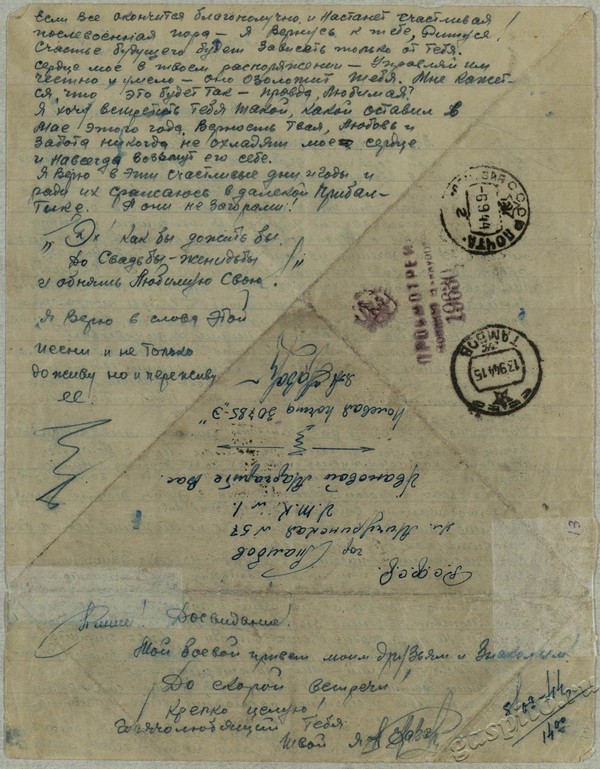 Если все окончится благополучно, и настанет счастливая
послевоенная пора – я вернусь к тебе,
Счастье будущего будет зависеть только от тебя.
Сердце мое в твоем распоряжении – управляй им
честно и умело – оно озолотит тебя. Мне кажет-
ся, что это будет так – правда, любимая?
Я хочу встретить тебя такой, какой оставил в
мае этого года. Верность твая, любовь и
забота никогда не охладят мое сердце
и навсегда возьмут его себе.
Я верю в эти счастливые дни и годы, и
ради их сражаюсь в далекой Прибал-
тике. А они не за горами!
„Эх! как бы дожить бы
до свадьбы-женидьбы
и обнять любимую свою."
Я верю в слова этой
песни и не только
доживу но и переживу
ее.
СССР
ПОЧТА
6 9 44
2
ПРОСМОТРЕНО
19630
ТАМБОВ
13 9 44 15
Р.С.Ф.С.Р.
гор Тамбов
ул. Мичуринская N 57
Ивановой Маргарите Вас.
Полевая почта 30785 „Э"
13
Пиши! Досвидание!
Мой боевой привет моим друзьям и знакомым.
До скорой встречи!
Крепко целую!
Горячолюбящий тебя
твой